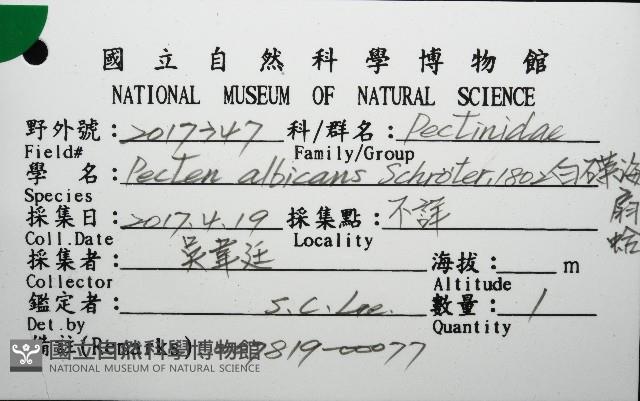 國立自然科學博物館
NATIONAL MUSEUM OF NATURAL SCIENCE
野外號：2017747 科/群名：Pectinidae
Field# Family/Group
學 名：Pecten albicans Schroter, 1802 白碟海扇蛤
Species
採集日：2017.4.19 採集點：不詳
Coll.Date Locality
採集者：吳韋廷 海拔：m
Collector Altitude
鑑定者：S.C. Lee. 數量：1
Det.by Quantity
備註(Remarks) 7819-00077
國立自然科學博物館
NATIONAL MUSEUM OF NATURAL SCIENCE